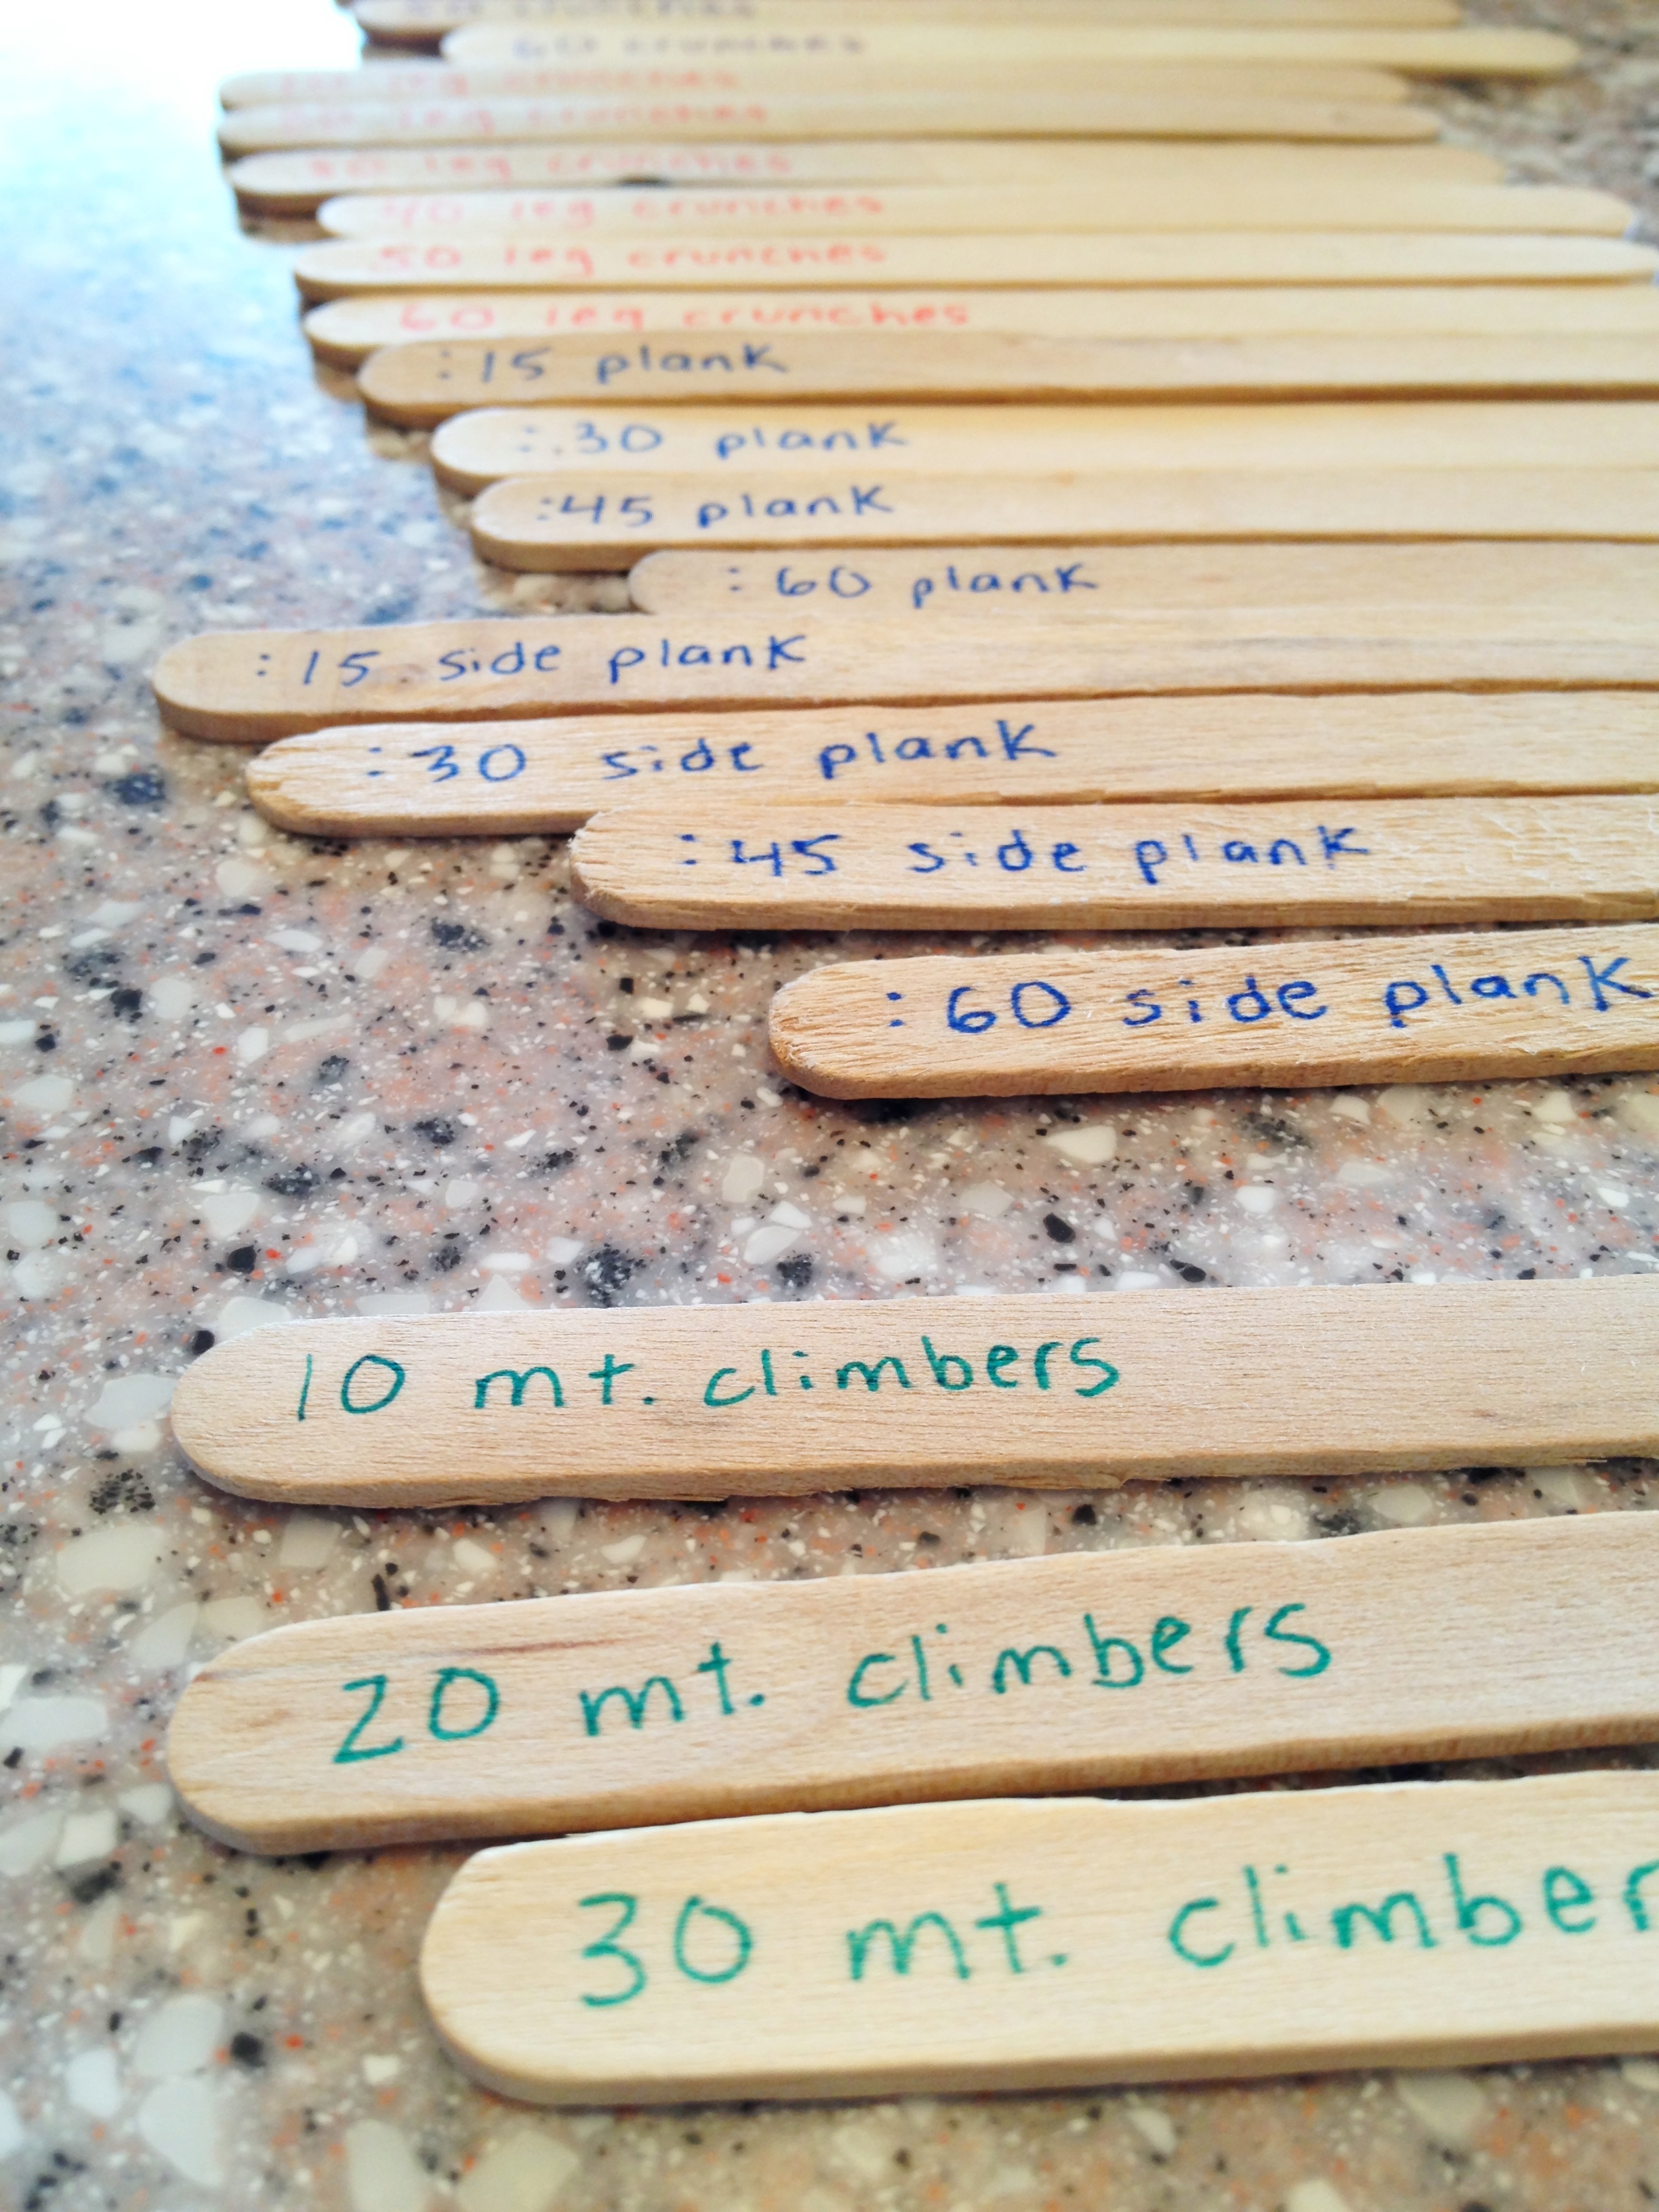 crunches
60 crunches
leg crunches
leg crunches
30 leg crunches
40 leg crunches
50 leg crunches
60 leg crunches
:15 plank
:30 plank
:45 plank
:60 plank
:15 side plank
:30 side plank
:45 side plank
:60 side plank
10 mt. climbers
20 mt. climbers
30 mt. climber